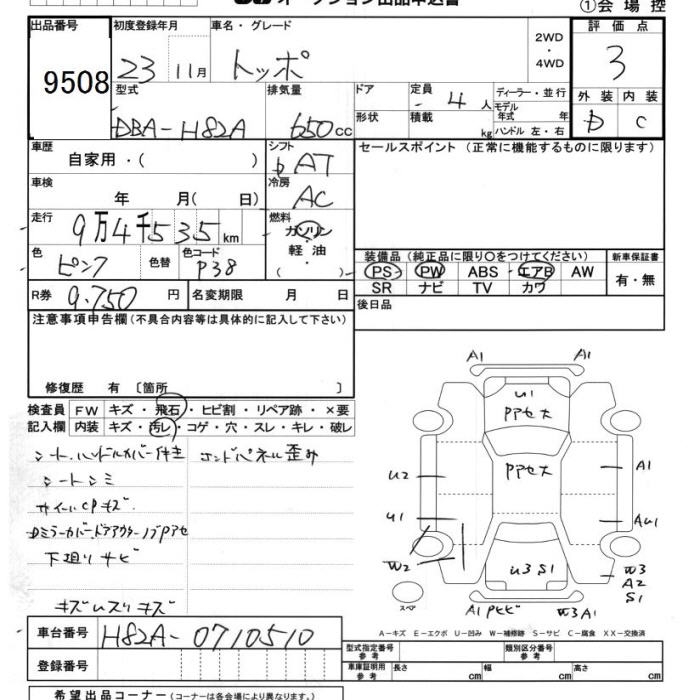 オークション出品申込書
①会場控
出品番号
9508
初度登録年月
23 11月
車名・グレード
トッポ
2WD
・
4WD
評価点
3
型式
DBA-H82A
排気量
650cc
ドア
形状
定員
4人
積載
kg
ディーラー・並行
モデル年式 年
ハンドル 左・右
外装 内装
D C
車歴
自家用・( )
シフト
AT
セールスポイント (正常に機能するものに限ります)
車検
年 月( 日)
冷房
AC
走行
9万4千535km
燃料
ガソリン
・
軽・油
( )
色
ピンク
色替
色コード
P38
装備品(純正品に限り○をつけてください)
新車保証書
PS PW ABS エアB AW
SR ナビ TV カワ
有・無
R券
9.750円
名変期限 月 日
後日品
注意事項申告欄(不具合内容等は具体的に記入して下さい)
修復歴 有〔箇所 〕
検査員
記入欄
FW キズ・飛石・ヒビ割・リペア跡・×要
内装 キズ・汚レ・コゲ・穴・スレ・キレ・破レ
シート、ハンドルカバー付き エンドパネル歪み
シートシミ
サイドCPキズ
DミラーカバードアアウターノブPアセ
下廻りサビ
キズムスリキズ
A1 A1
U1
Pアセ大
Pアセ大
U2 A1
U1 AU1
W2
U3 S1
W3
A2
S1
スペア
A1 Pヒビ W3A1
A-キズ E-エクボ U-凹み W-補修跡 S-サビ C-腐食 XX-交換済
車台番号
H82A-0710510
登録番号
型式指定番号 類別区分番号
車庫証明用参考 長さ cm 幅 cm 高さ cm
希望出品コーナー(コーナーは各会場により異なります)